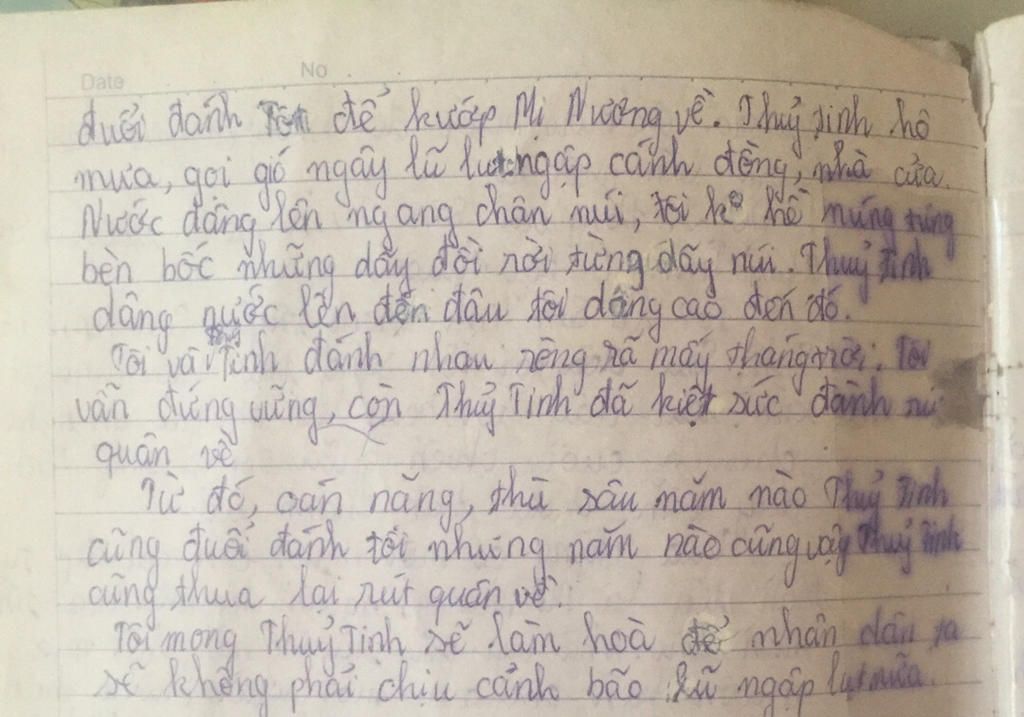 Date No
đuổi đánh tôi để kướp Mị Nương về. Thuỷ tinh hô
mưa, gọi gió ngây lũ lụt ngập cánh đồng, nhà cửa.
Nước dâng lên ngang chân núi, tôi ko hề núng túng
bèn bốc những dẫy đồi rời từng dẫy núi. Thuỷ tinh
dâng nước lên đến đâu tôi dâng cao đến đó.
Tôi và Thuỷ Tinh đánh nhau rêng rã mấy tháng trời. Tôi
vẫn đứng vững, còn Thuỷ Tinh đã kiệt sức đành
quân về
Từ đó, oán nặng, thù sâu năm nào Thuỷ Tinh
cũng đuổi đánh tôi nhưng năm nào cũng vậy Thuỷ Tinh
cũng thua lại rút quân về.
Tôi mong Thuỷ Tinh sẽ làm hoà để nhân dân ta
sẽ không phải chịu cảnh bão lũ ngập lụt nữa.